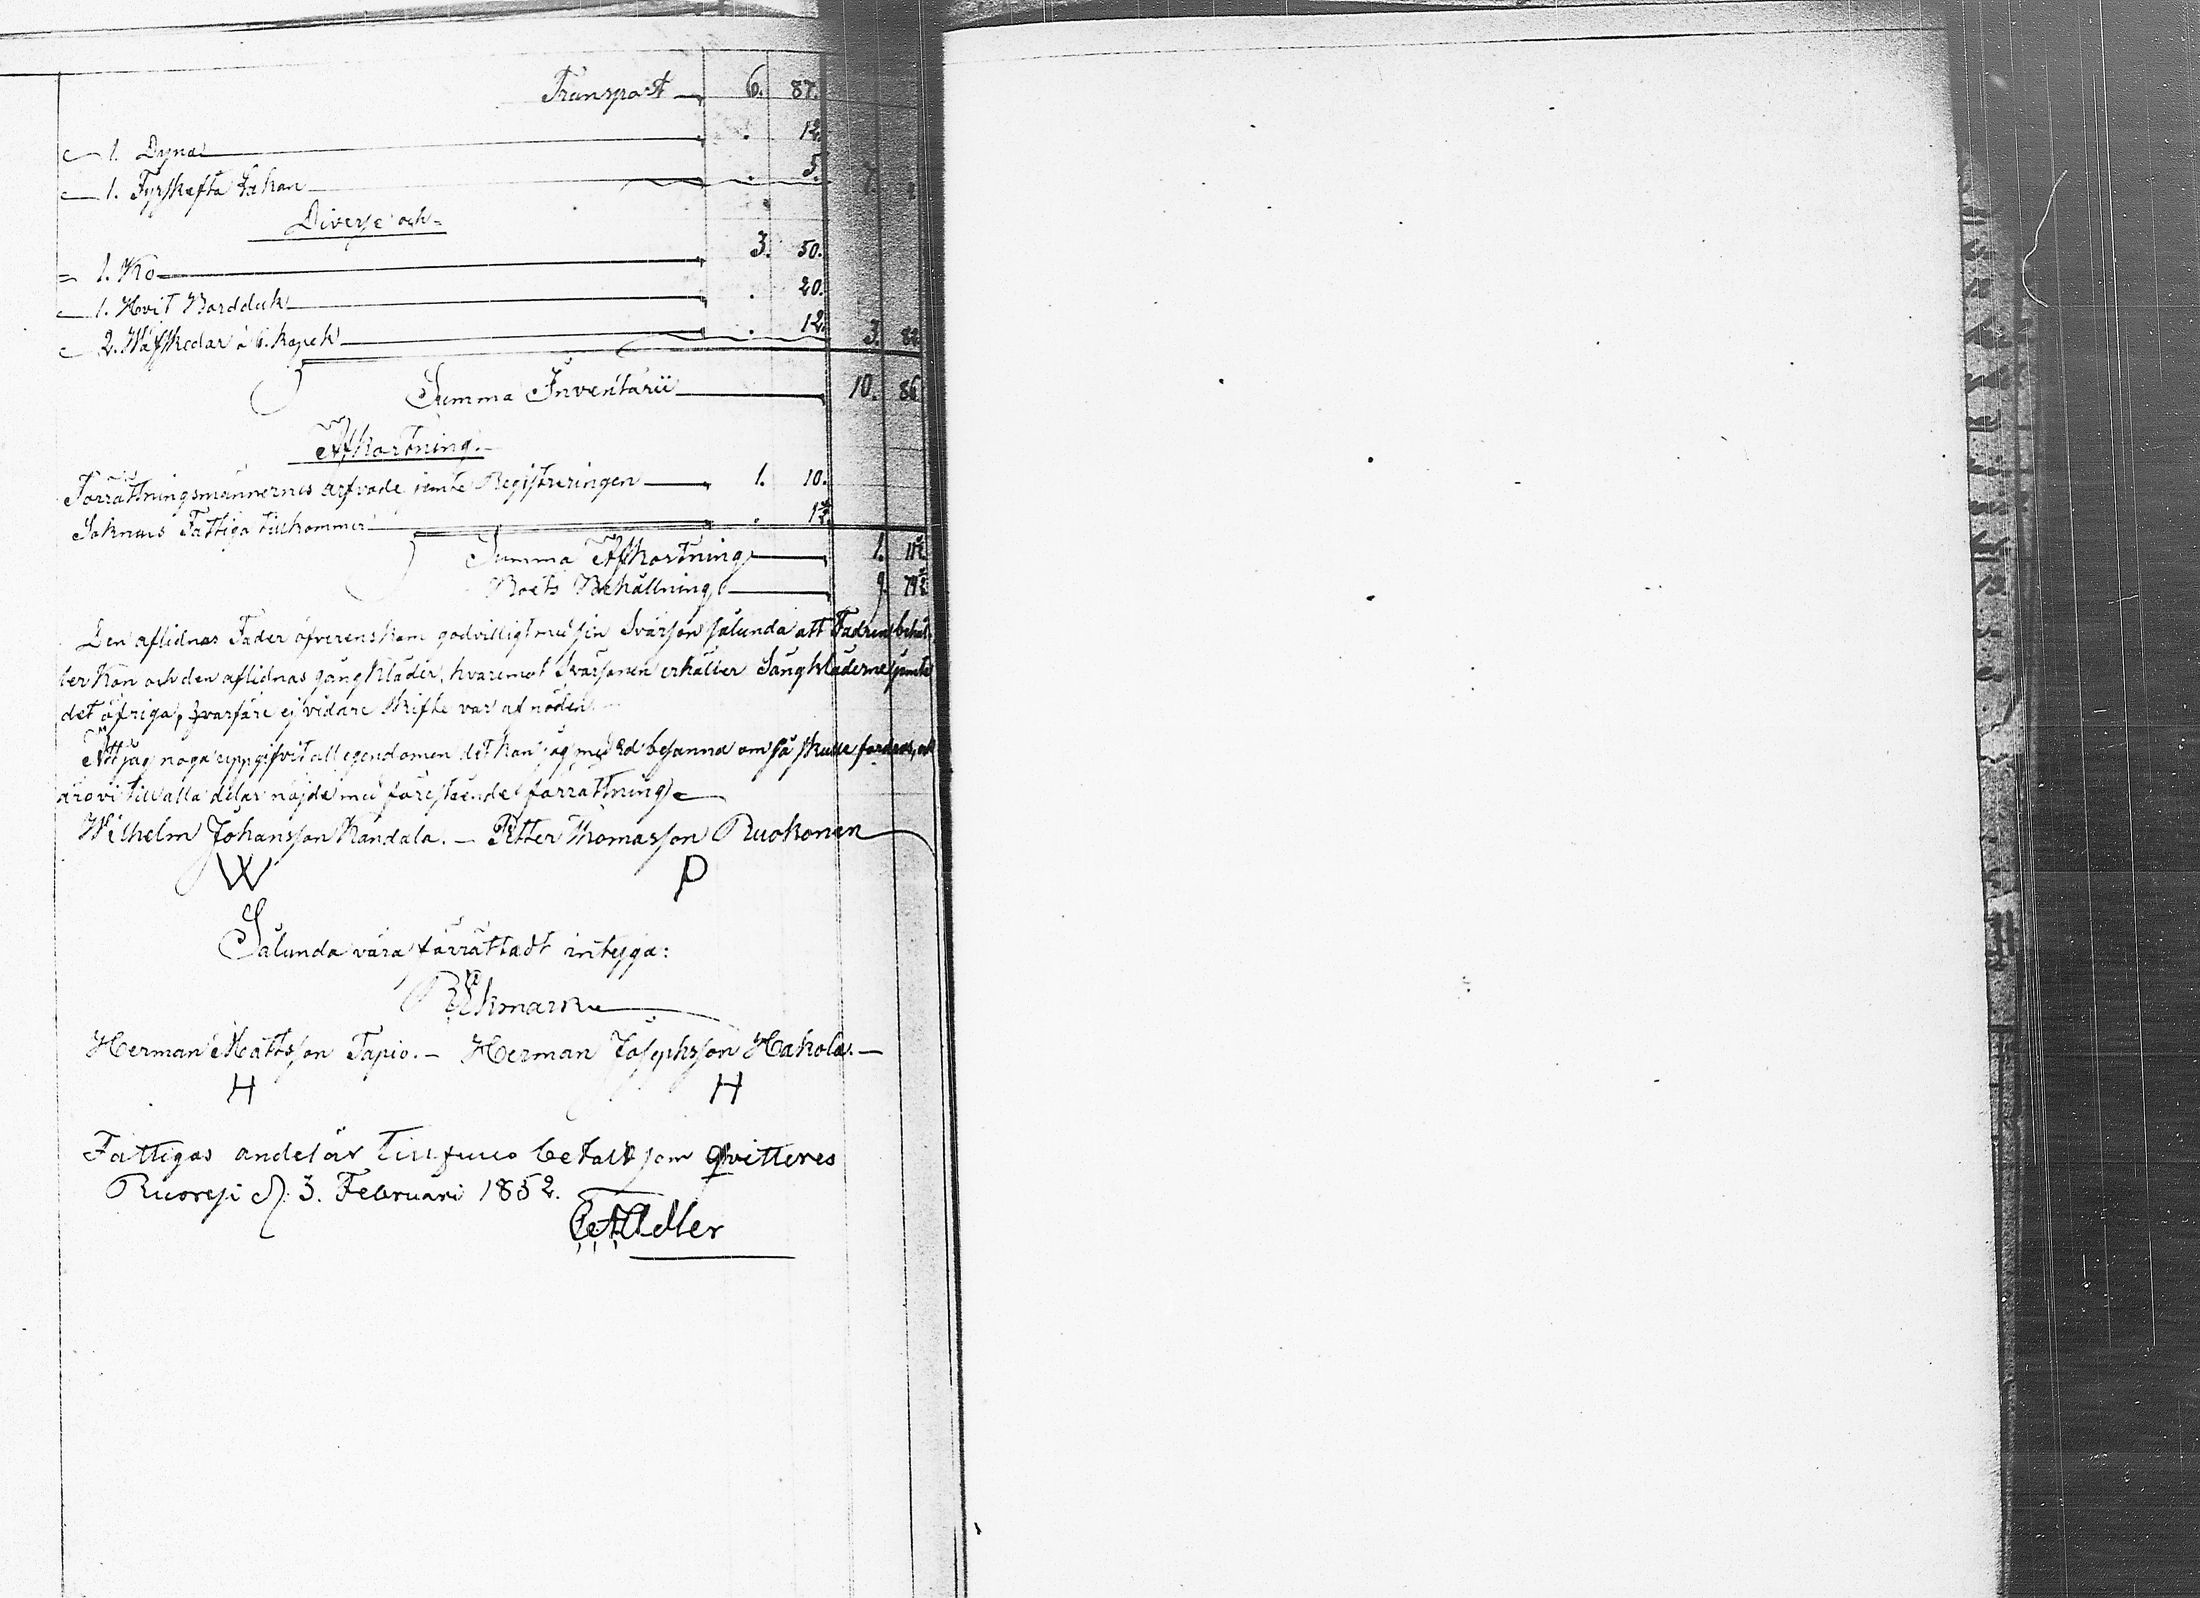 Transport 6. 87.
1. Dyna . 12.
1. Fyrskefta Lakan . 5. 7. 4
Diverse och
1. Ko 3. 50.
1. Hvit Bordduk . 20.
2. Wäfskedar à 6. kopek . 12. 3. 82.
Summa Inventarii 10. 86
Afkortning.
Förrättningsmännernes arfvode jemte Registreringen 1. 10.
Soknens Fattiga tillkommer . 1½.
Summa Afkortning 1. 11½
Boets Behållning 9. 74½
Den aflidnas Fader öfverenskom godvilligt med sin Svärson sålunda att Fadren behål-
ler Kon och den aflidnas gångkläder, hvaremot Svärsonen erhåller Sängkläderne jemte
det öfriga, hvarföre ej vidare skifte var af nöden.
Att jag noga uppgifvit all egendomen det kan jag med Ed besanna om så skulle fordras, och
äro vi till alla delar nöjde med förestående förrättning
Wilhelm Johansson Kandala. — Petter Thomasson Ruokonen
W P
Sålunda vara förrättadt intyga:
Herman Mattsson Tapio. — Herman Josephsson Hakola. —
H H
Fattigas andel är till fullo betalt som qvitteres
Ruovesi d. 3. Februari 1852.
Adler